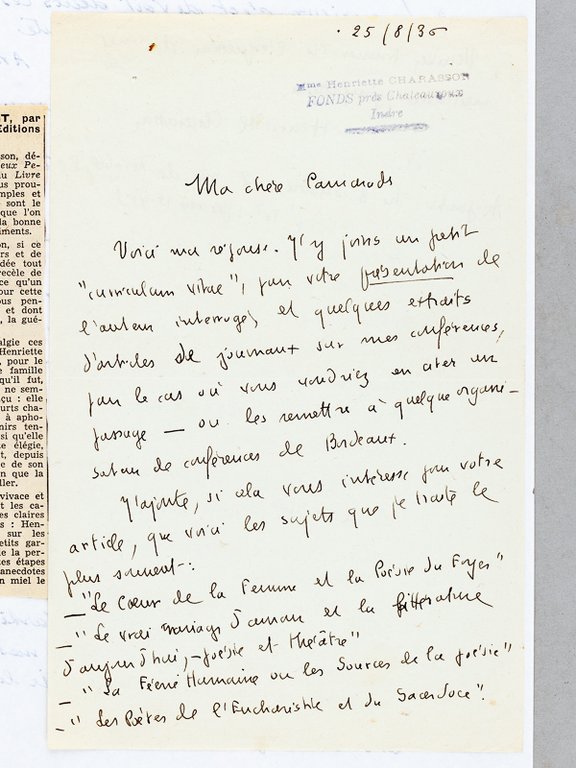 25/8/36
Mme Henriette CHARASSON
FONDS près Chateauroux
Indre
Ma chère Camarade
Voici ma réponse. J'y joins un petit
"curriculum vitae", pour votre présentation de
l'auteur interrogé, et quelques extraits
d'articles de journaux sur mes conférences,
pour le cas où vous voudriez en citer un
passage — ou les remettre à quelque organi-
sateur de conférences de Bordeaux.
J'ajoute, si cela vous intéresse pour votre
article, que voici les sujets que je traite le
plus souvent :
— "Le Cœur de la Femme et la Poésie du Foyer"
— "Le vrai mariage d'amour et la littérature
d'aujourd'hui, — poésie et théâtre"
— "La Féerie Humaine ou les Sources de la poésie"
— "Les Poètes de l'Eucharistie et du Sacerdoce".
T, par
Editions
son, dé-
eux Pe-
u Livre
us prou-
mples et
sont le
que l'on
la bonne
iments.
on, si ce
rs et de
dée tout
recèle de
ce qu'un
our cette
ous pen-
et dont
, la gué-
algie ces
Henriette
, pour le
e famille
qu'il fut,
ne sem-
çu : elle
urts cha-
à apho-
nirs ten-
si qu'elle
e élégie,
t, depuis
e de son
n que la
ller.
vivace et
t les ca-
es claires
s : Hen-
sur les
etits gar-
e la per-
es étapes
anecdotes
n miel le